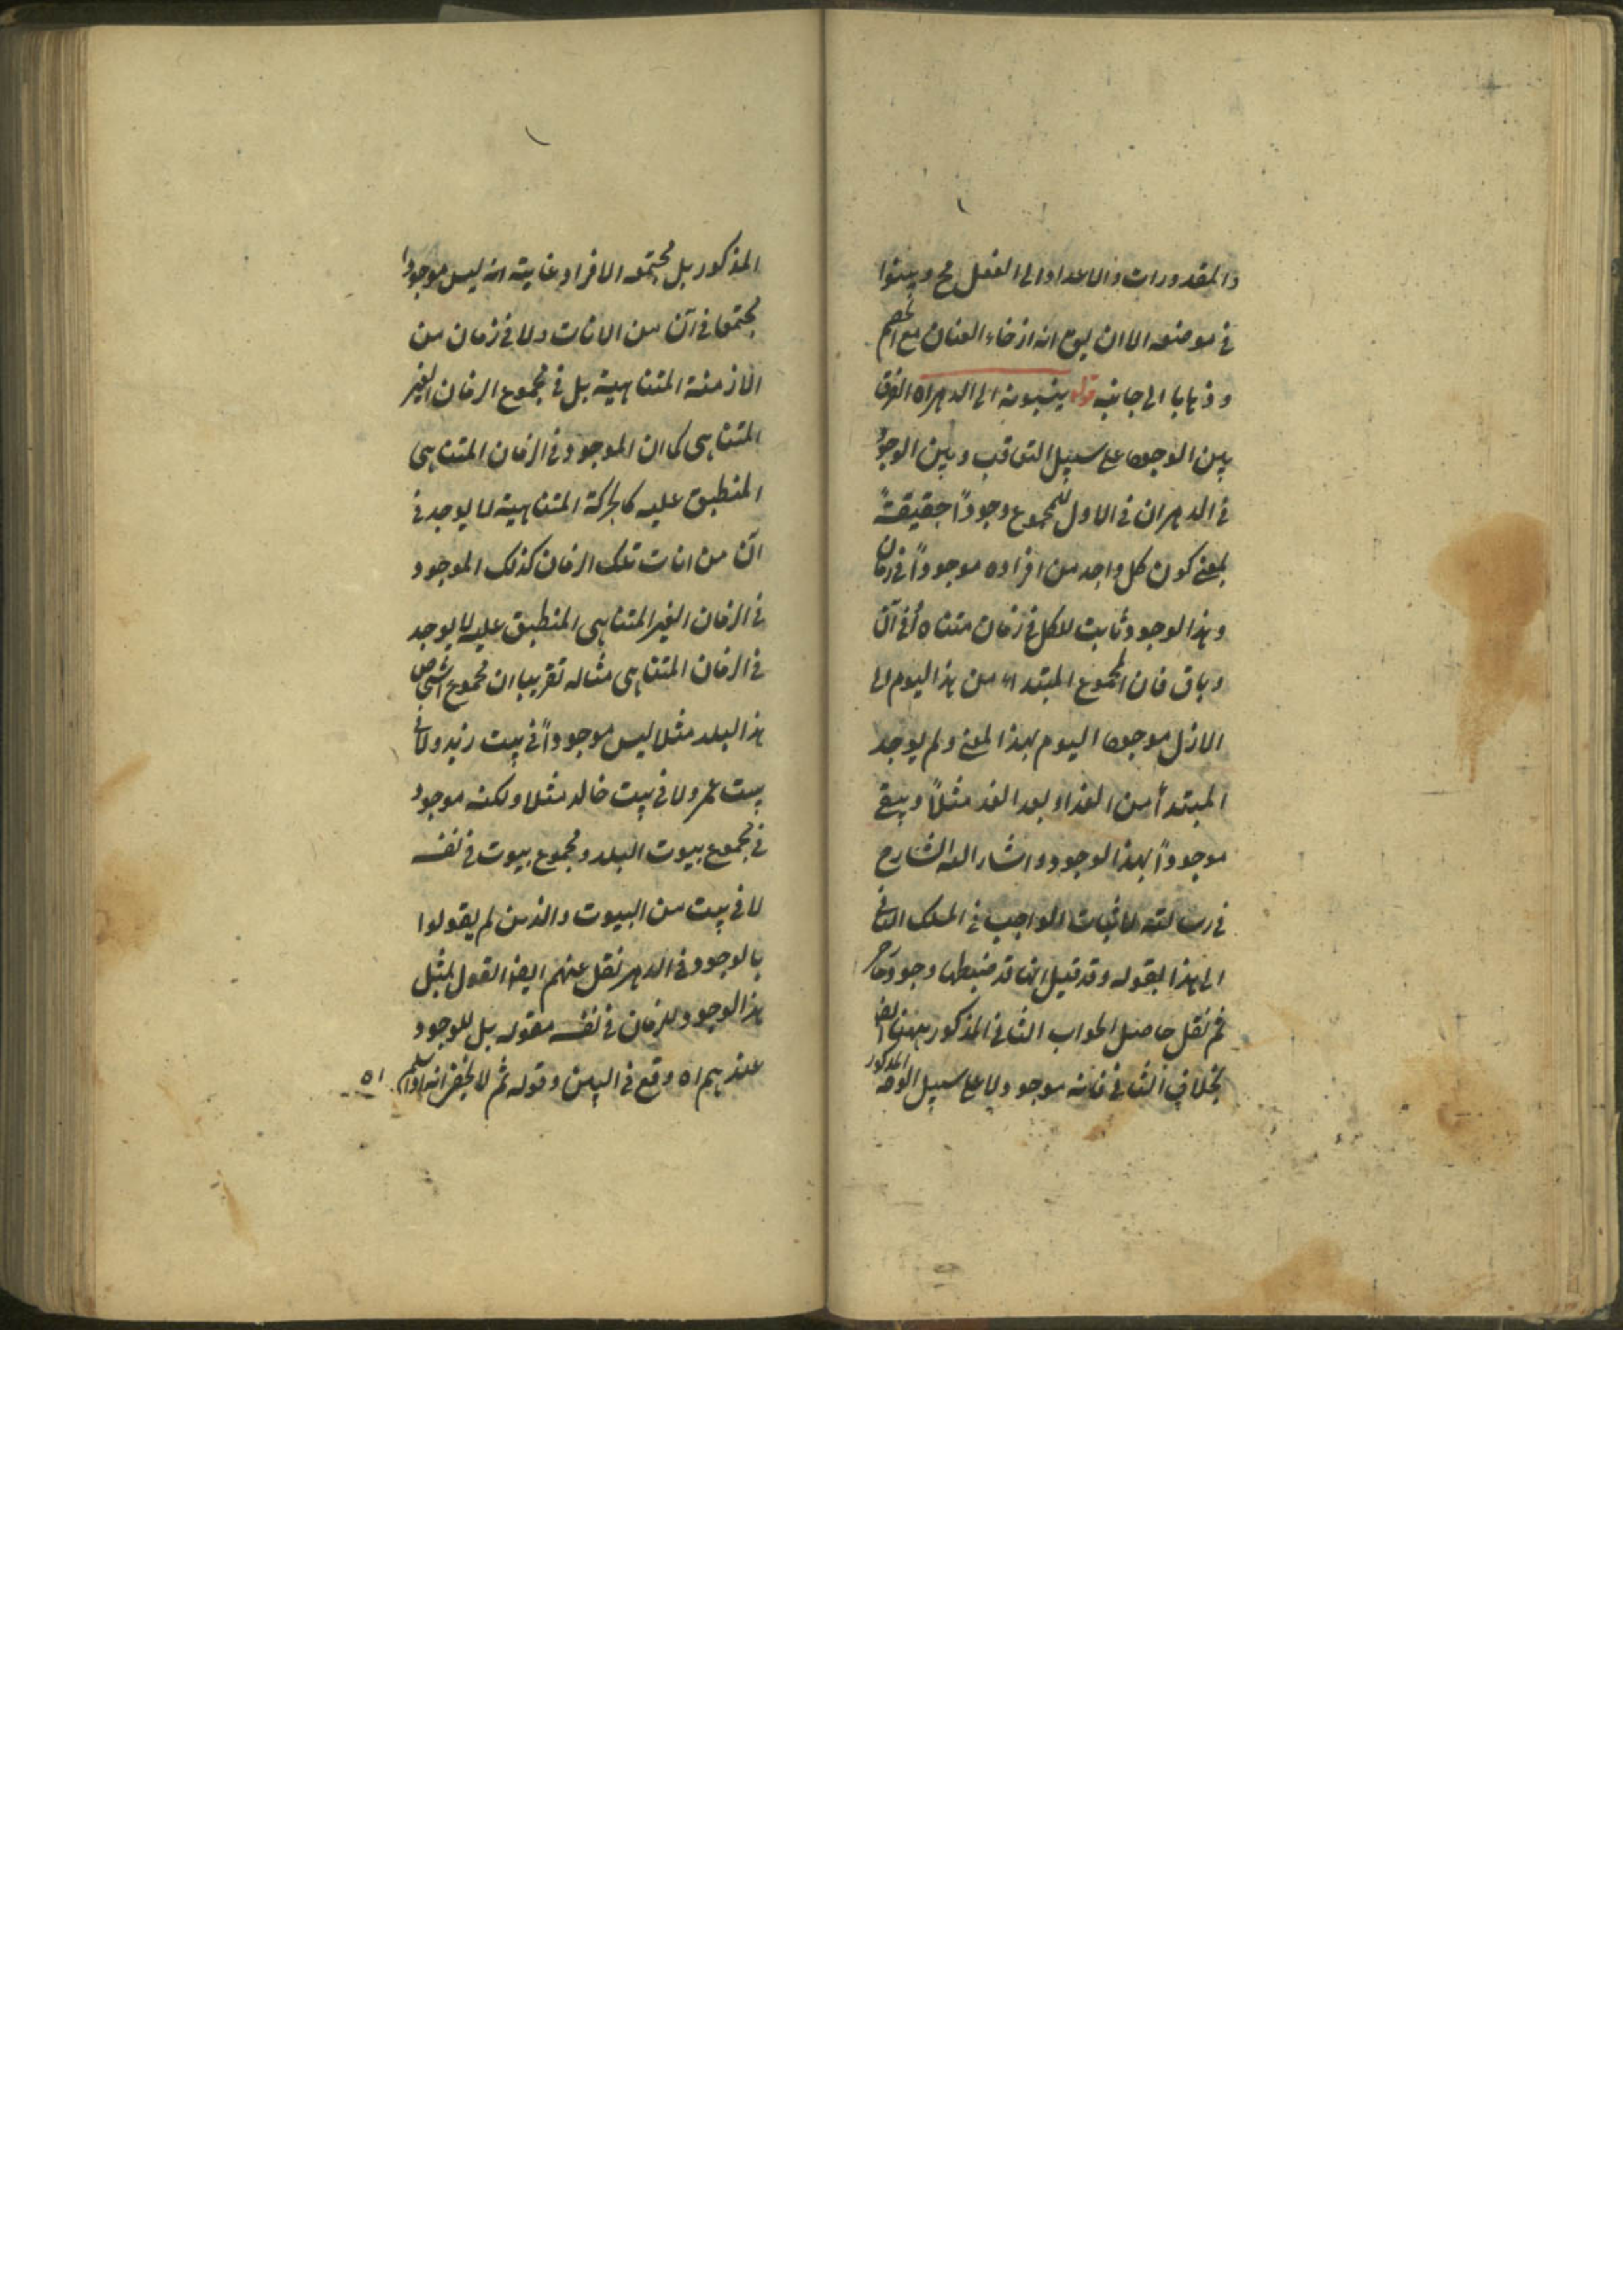 والمقدورات والاعداد الى الفعل مح وبينوا
فى موضعه الا ان يق انه ارخاء العنان مع الخصم
وذهابا الى جانبه قوله ينسبونه الى الدهر اه الفرق
بين الوجود على سبيل التعاقب وبين الوجود
فى الدهر ان فى الاول للمجموع وجوداً حقيقةً
بمعنى كون كل واحد من افراده موجوداً فى زمان
وهذا الوجود ثابت للكل فى زمان متناه أو فى آن
وباق فان المجموع المبتدأ من هذا اليوم الى
الازل موجود اليوم بهذا المعنى ولم يوجد
المبتدأ من الغد او بعد الغد مثلاً ويبقى
موجوداً بهذا الوجود واشار اليه الشارح
فى رسالته لاثبات الواجب فى المسلك الثانى
الى هذا بقوله وقد قيل انها قد ضبطها وجود ما
ثم نقل حاصل الجواب الثانى المذكور ههنا ايضا
بخلاف الثانى فانه موجود لا على سبيل الوجه المذكور
المذكور بل مجتمعه الافراد غايته انه ليس موجودا
مجتمعا فى آن من الانات ولا فى زمان من
الازمنة المتناهية بل فى مجموع الزمان الغير
المتناهى كما ان الموجود فى الزمان المتناهى
المنطبق عليه كالحركة المتناهية لا يوجد فى
آن من انات تلك الزمان كذلك الموجود
فى الزمان الغير المتناهى المنطبق عليه لا يوجد
فى الزمان المتناهى مثاله تقريبا ان مجموع اشخاص
هذا البلد مثلا ليس موجوداً فى بيت زيد ولا فى
بيت عمرو ولا فى بيت خالد مثلا ولكنه موجود
فى مجموع بيوت البلد ومجموع بيوت فى نفسه
لا فى بيت من البيوت والذين لم يقولوا
بالوجود فى الدهر نقل عنهم ايضا القول بمثل
هذا الوجود للزمان فى نفسه مقوله بل للوجود
عندهم اه وقع فى البين وقوله ثم لا يخفى انه اذا سلم اه